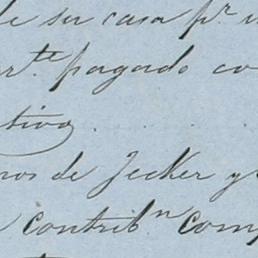 de su casa pr
arte pagado co
tiva
nos de Jecker y
contribn comp